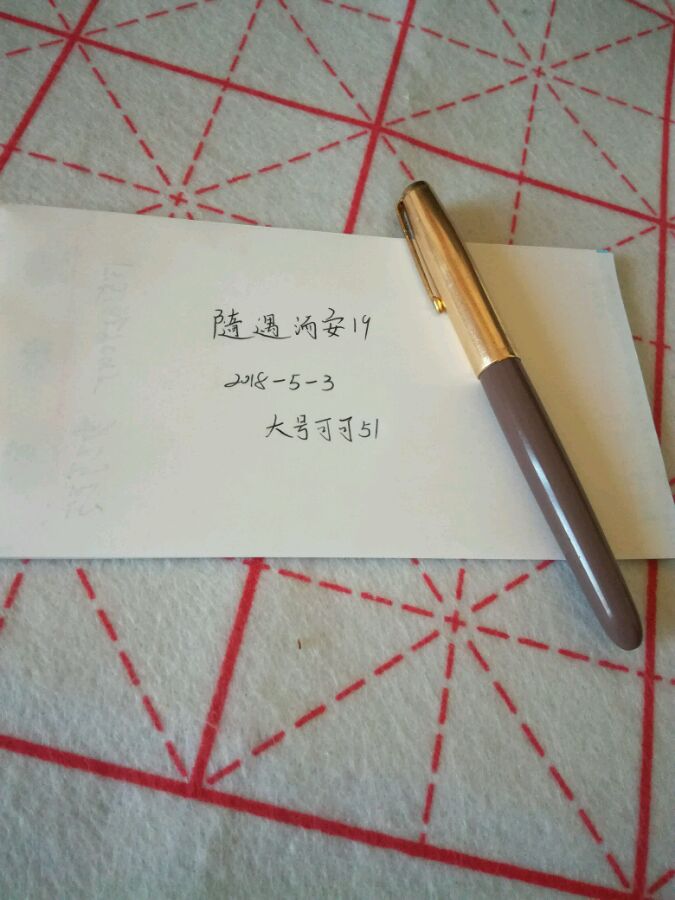 随遇而安19
2018-5-3
大号可可51